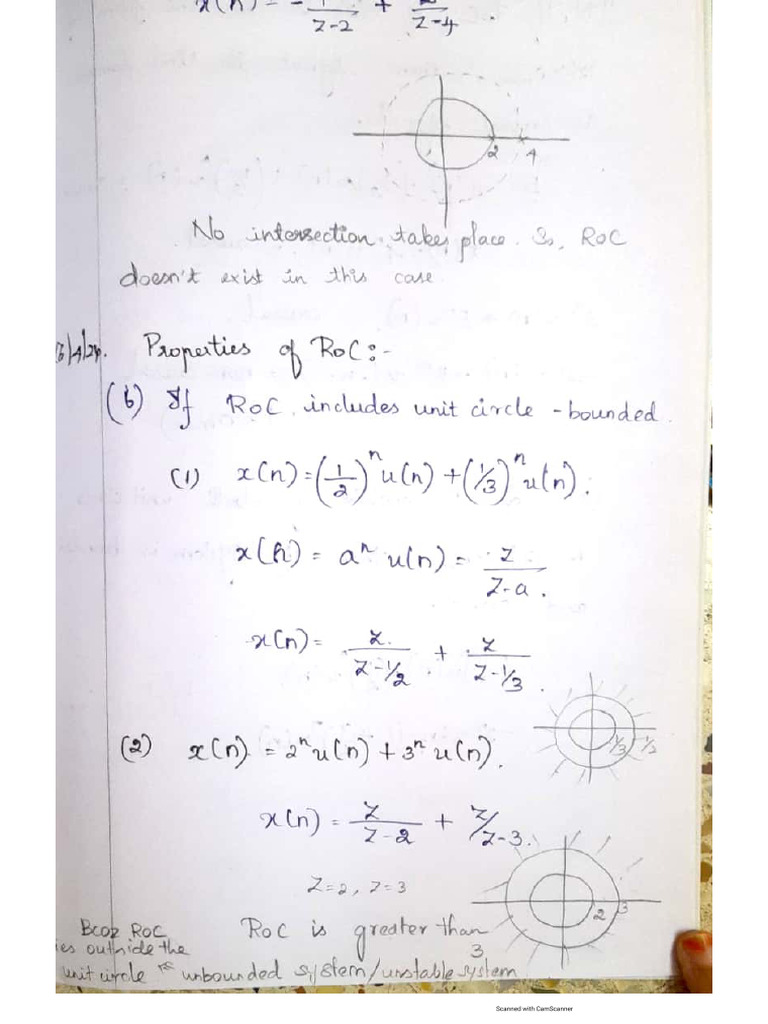 x(n) = - 1/(z-2) + /(z-4).
2 4
No intersection takes place. So, ROC
doesn't exist in this case.
/4/24. Properties of ROC:-
(6) If ROC includes unit circle - bounded.
(1) x(n) = (1/2)^n u(n) + (1/3)^n u(n).
x(n) = a^n u(n) = z/(z-a).
x(n) = z/(z-1/2) + z/(z-1/3).
1/3 1/2
(2) x(n) = 2^n u(n) + 3^n u(n).
x(n) = z/(z-2) + z/(z-3).
z=2, z=3
2 3
Bcoz ROC
ies outside the
unit circle
ROC is greater than
3
unbounded system/unstable system
Scanned with CamScanner